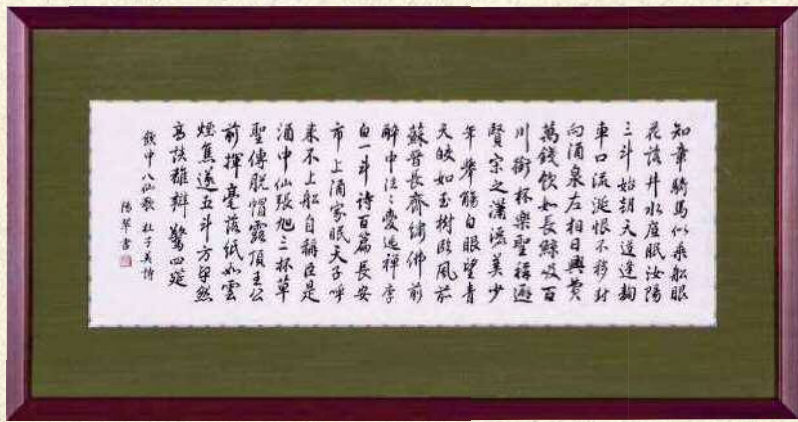 知章騎馬似乘船眼
花落井水底眠汝陽
三斗始朝天道逢麴
車口流涎恨不移封
向酒泉左相日興費
萬錢飲如長鯨吸百
川銜杯樂聖稱避
賢宗之瀟灑美少
年舉觴白眼望青
天皎如玉樹臨風前
蘇晉長齋繡佛前
醉中往々愛逃禪李
白一斗詩百篇長安
市上酒家眠天子呼
來不上船自稱臣是
酒中仙張旭三杯草
聖傳脫帽露頂王公
前揮毫落紙如雲
煙焦遂五斗方卓然
高談雄辯驚四筵
飲中八仙歌 杜子美詩
陽翠書